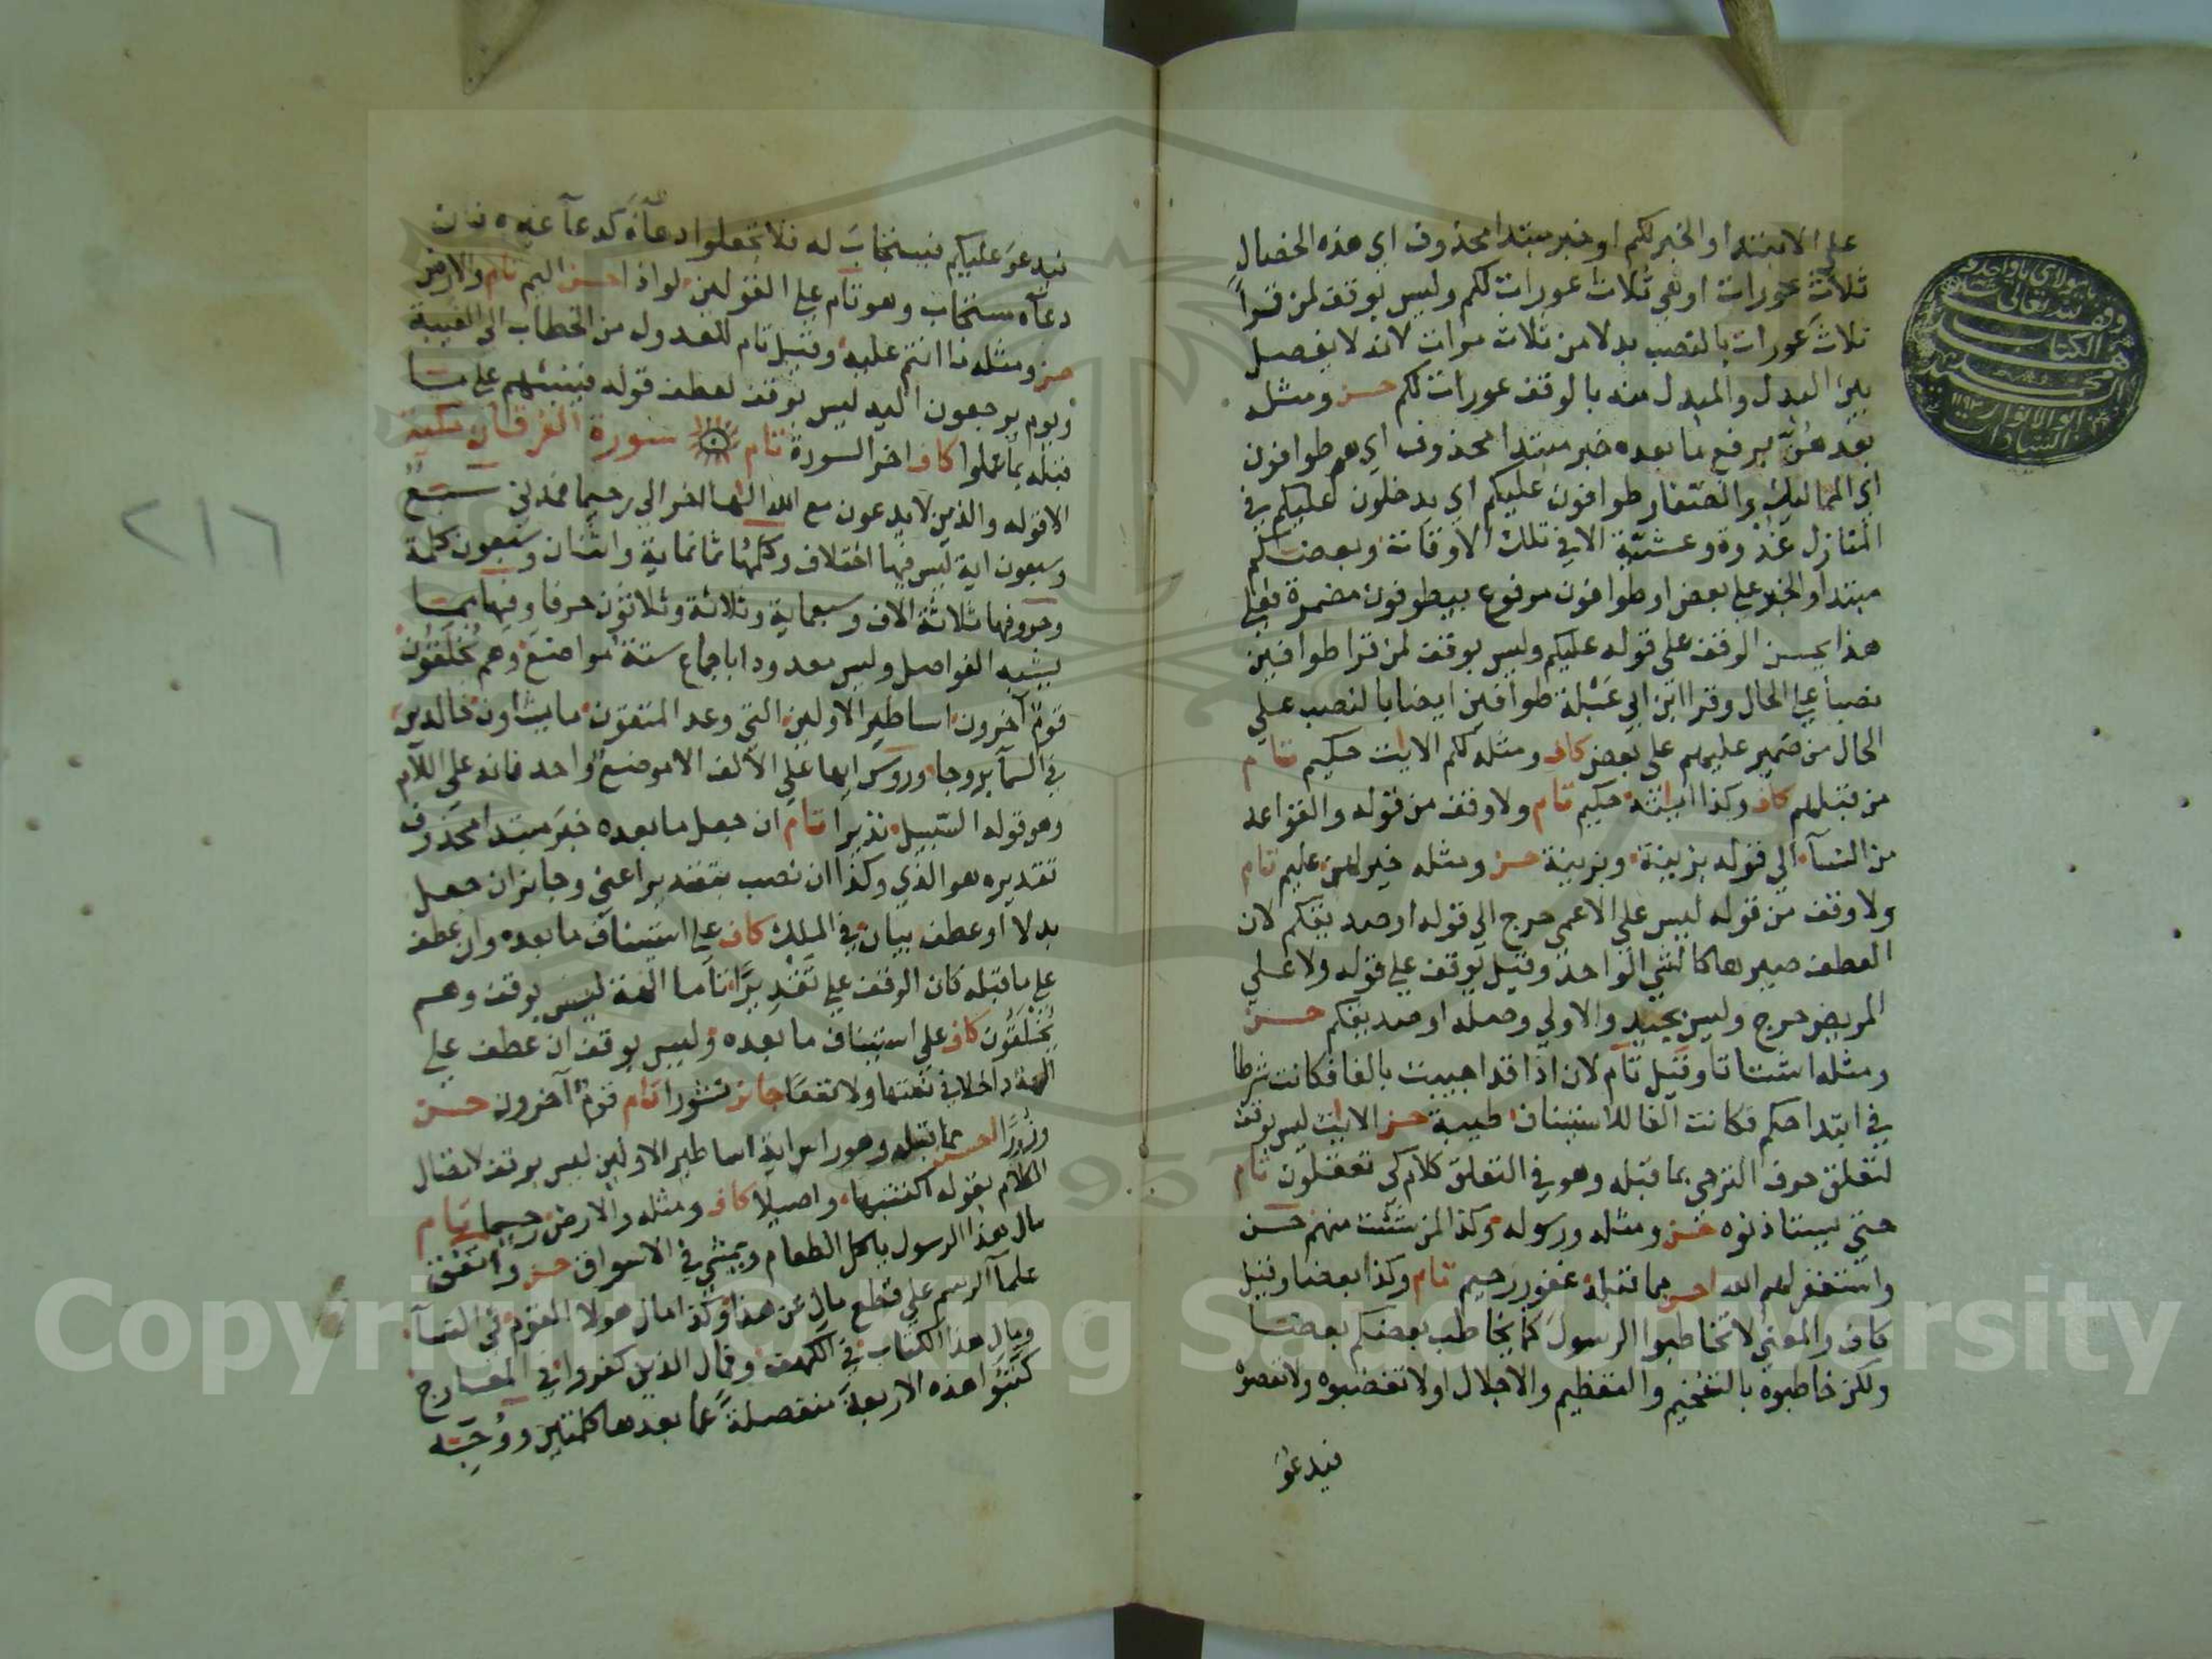 على الابتداء والخبر لكم او خبر مبتدا محذوف اي هذه الخصال
ثلاث عورات او هي ثلاث عورات لكم وليس بوقف لمن قرأ
ثلاث عورات بالنصب بدلا من ثلاث مرات لانه لا يفصل
بين البدل والمبدل منه بالوقف عورات لكم حسن ومثله
بعدهن برفع ما بعده خبر مبتدا محذوف اي هم طوافون
اي المماليك والصغار طوافون عليكم اي يدخلون عليكم في
المنازل غدوة وعشية الا في تلك الاوقات وبعضكم
مبتدا والخبر على بعض او طوافون مرفوع بيطوفون مضمرة فعلى
هذا يحسن الوقف على قوله عليكم وليس بوقف لمن قرا طوافين
نصبا على الحال وقرا ابن ابي عبلة طوافين ايضا بالنصب على
الحال من ضمير عليهم على بعض كاف ومثله لكم الايات حكيم تام
من قبلهم كاف وكذا اياته حكيم تام ولا وقف من قوله والقواعد
من النسآ الى قوله بزينة وبزينة حسن ومثله خير لهن عليم تام
ولا وقف من قوله ليس على الاعمى حرج الى قوله او صديقكم لان
العطف صيرها كالشي الواحد وقيل يوقف على قوله ولا على
المريض حرج وليس بجيد والاولي وصله او صديقكم حسن
ومثله اشتاتا وقيل تام لان اذا قد اجيبت بالفا فكانت شرطا
في ابتدا حكم فكانت الفا للاستئناف طيبة حسن الايات ليس بوقف
لتعلق حرف الترجي بما قبله وهو في التعلق كلام كي تعقلون تام
حتى يستاذنوه حسن ومثله ورسوله وكذا لمن شئت منهم حسن
واستغفر لهم الله احسن مما قبله غفور رحيم تام وكذا بعضا وقيل
كاف والمعنى لا تخاطبوا الرسول كما يخاطب بعضكم بعضا
ولكن خاطبوه بالتفخيم والتعظيم والاجلال او لا تغضبوه ولا تعصوه
فيدعو
وقف لله تعالى
٢١٦
فيدعو عليكم فيستجاب له فلا تجعلوا دعآه كدعآ غيره فان
دعآه مستجاب وهو تام على القولين لواذا احسن اليم تام والارض
حسن ومثله ما انتم عليه وقيل تام للعدول من الخطاب الى الغيبة
ويوم يرجعون اليه ليس بوقف لعطف قوله فينبئهم على ما
قبله بما عملوا كاف اخر السورة تام سورة الفرقان مكية
الا قوله والذين لا يدعون مع الله الها اخر الى رحيما فمدني سبع
وسبعون اية ليس فيها اختلاف وكلمها ثمانماية واثنان وسبعون كلمة
وحروفها ثلاثة الاف وسبعماية وثلاثة وثلاثون حرفا وفيها مما
يشبه الفواصل وليس معدودا باجماع ستة مواضع وهم يخلقون
قوم آخرون اساطير الاولين التي وعد المتقون ما يشاون خالدين
في السمآ بروجا وروس ايها على الالف الا موضع واحد فانه على اللام
وهو قوله السبيل نذيرا تام ان جعل ما بعده خبر مبتدا محذوف
تقديره هو الذي وكذا ان نصب بتقدير اعني وجايز ان جعل
بدلا او عطف بيان في الملك كاف على استيناف ما بعده وان عطف
على ما قبله كان الوقف على تقديرا تاما الهة ليس بوقف وهم
يخلقون كاف على استيناف ما بعده وليس بوقف ان عطف على
الهة داخلا في نعتها ولا نفعا جايز نشورا تام قوم آخرون حسن
وزورا احسن مما قبله وهو راس اية اساطير الاولين ليس بوقف لاتصال
الكلام بقوله اكتتبها واصيلا كاف ومثله والارض رحيما تام
مال هذا الرسول ياكل الطعام ويمشي في الاسواق حسن واتفق
علمآ الرسم على قطع مال عن هذا وكذا مال هولا القوم في النسآ
ومال هذا الكتاب في الكهف وفمال الذين كفروا في المعارج
كتبوا هذه الاربعة منفصلة عما بعدها كلمتين ووجه
Copyright © King Saud University